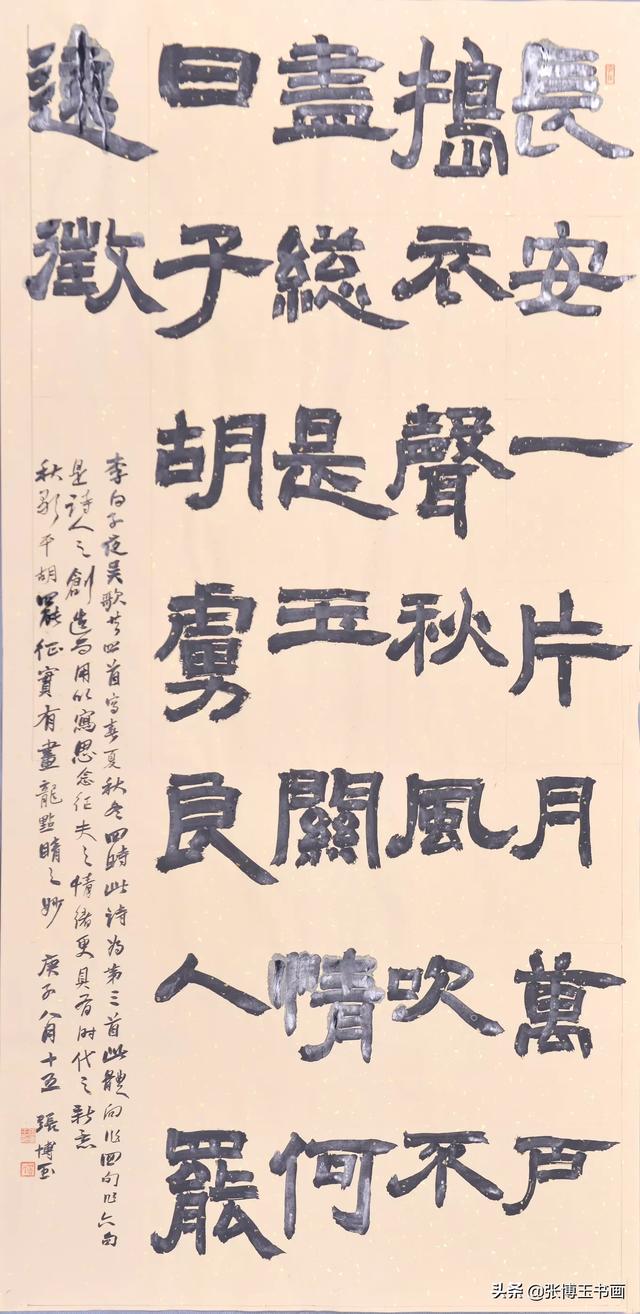 長安一片月萬户
搗衣聲秋風吹不
盡總是玉關情何
日子胡虜良人罷
遠徵
李白子夜吴歌共四首写春夏秋冬四時此詩为第三首此體向作四句作六句
是詩人之創造而用以寫思念征夫之情緒更具有时代之新意
秋歌平胡罷征實有畫龍點睛之妙 庚子八月十五 張博玉
头条 @张博玉书画